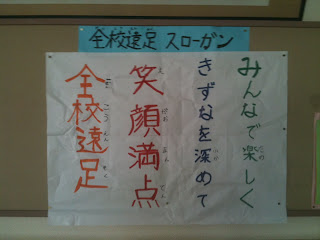 全校遠足 スローガン
みんなで楽しく
きずなを深めて
笑顔満点
全校遠足